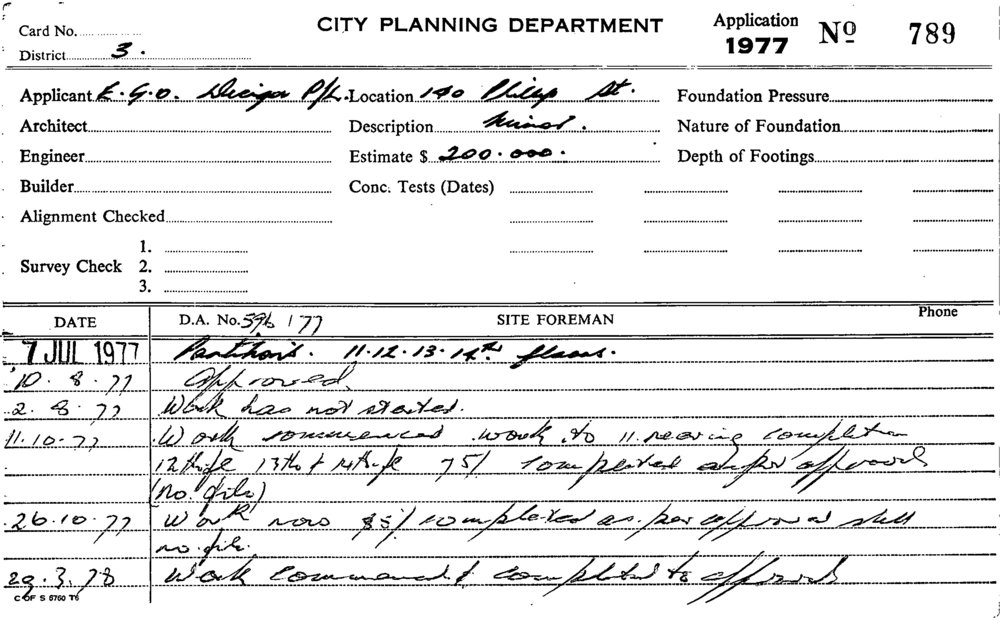 CITY PLANNING DEPARTMENT
Application
1977 Nº 789
Card No.
District 3.
Applicant E.G.O. Design P/L. Location 140 Philip St. Foundation Pressure
Architect Description Minor. Nature of Foundation
Engineer Estimate $ 200.000. Depth of Footings
Builder Conc. Tests (Dates)
Alignment Checked
1.
Survey Check 2.
3.
DATE D.A. No. 596/77 SITE FOREMAN Phone
7 JUL 1977 Partitions. 11.12.13.14th floors.
10.8.77 Approved.
2.8.77 Work has not started.
11.10.77 Work commenced work to 11 nearing completion
12th fl 13th & 14th fl 75% completed as per approval
(no file)
26.10.77 Work now 85% completed as per approval still
no file.
29.3.78 Work commenced & completed to approval
C OF S 5760 T6